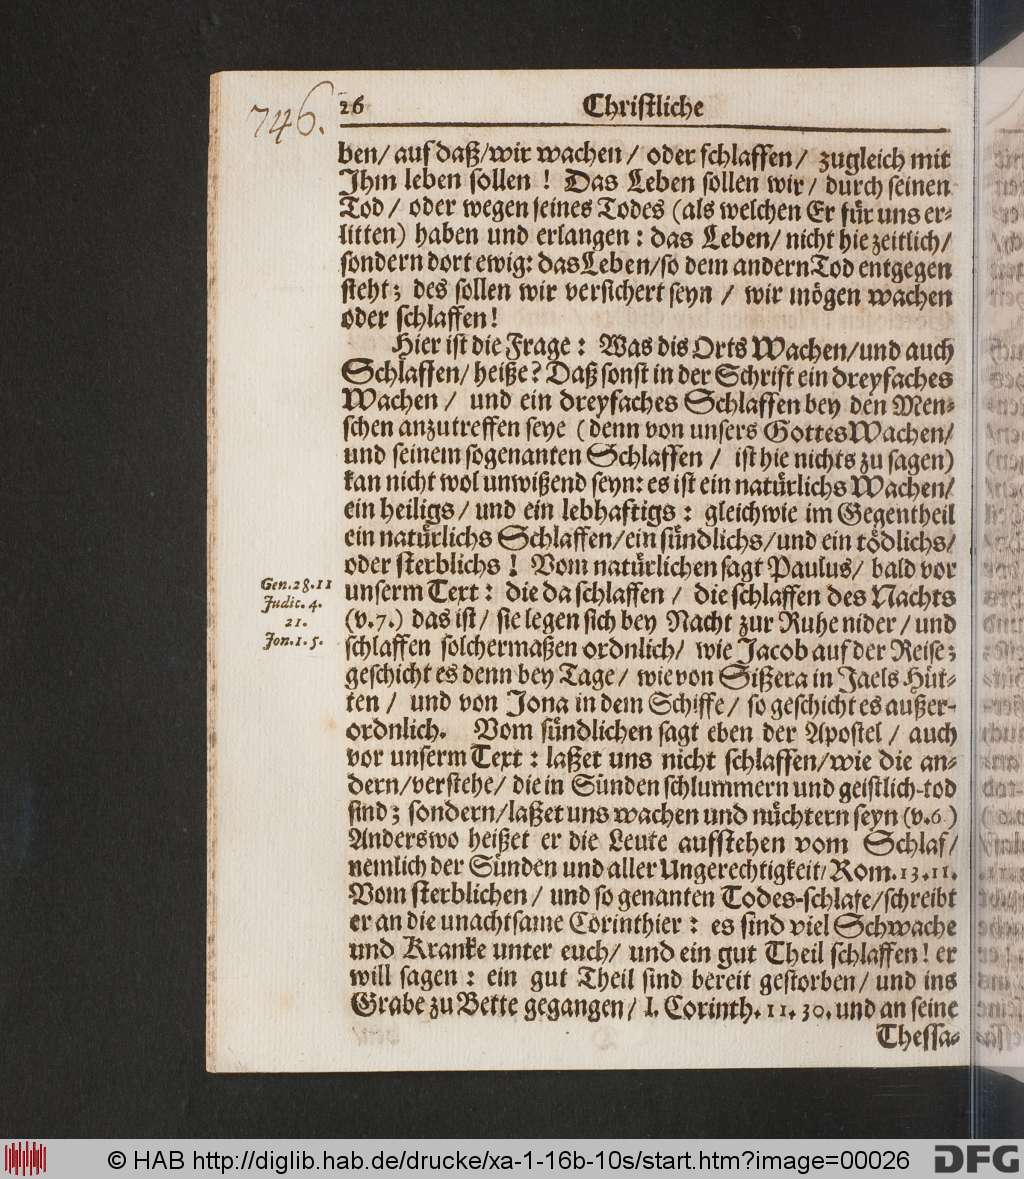 746.
26 Christliche
ben/ auf daß/wir wachen / oder schlaffen / zugleich mit
Ihm leben sollen ! Das Leben sollen wir / durch seinen
Tod / oder wegen seines Todes (als welchen Er für uns er-
litten) haben und erlangen : das Leben/ nicht hie zeitlich/
sondern dort ewig: das Leben/so dem andern Tod entgegen
steht; des sollen wir versichert seyn / wir mögen wachen
oder schlaffen!
Hier ist die Frage : Was dis Orts Wachen/und auch
Schlaffen/ heiße? Daß sonst in der Schrift ein dreyfaches
Wachen / und ein dreyfaches Schlaffen bey den Men-
schen anzutreffen seye (denn von unsers Gottes Wachen/
und seinem sogenanten Schlaffen / ist hie nichts zu sagen)
kan nicht wol unwißend seyn: es ist ein natürlichs Wachen/
ein heiligs / und ein lebhaftigs : gleichwie im Gegentheil
ein natürlichs Schlaffen/ein sündlichs/und ein tödlichs/
oder sterblichs ! Vom natürlichen sagt Paulus/ bald vor
unserm Text : die da schlaffen / die schlaffen des Nachts
(v.7.) das ist / sie legen sich bey Nacht zur Ruhe nider / und
schlaffen solchermaßen ordnlich/ wie Jacob auf der Reise;
geschicht es denn bey Tage / wie von Sißera in Jaels Hüt-
ten / und von Jona in dem Schiffe / so geschicht es außer-
ordnlich. Vom sündlichen sagt eben der Apostel / auch
vor unserm Text : laßet uns nicht schlaffen/wie die an-
dern/verstehe/ die in Sünden schlummern und geistlich-tod
sind; sondern/laßet uns wachen und nüchtern seyn (v.6.)
Anderswo heißet er die Leute aufstehen vom Schlaf/
nemlich der Sünden und aller Ungerechtigkeit/ Rom.13.11.
Vom sterblichen / und so genanten Todes-schlafe/schreibt
er an die unachtsame Corinthier : es sind viel Schwache
und Kranke unter euch/ und ein gut Theil schlaffen! er
will sagen : ein gut Theil sind bereit gestorben / und ins
Grabe zu Bette gegangen / I. Corinth. 11. 30. und an seine
Thessa-
Gen. 28. 11
Judic. 4.
21.
Jon. 1. 5.
© HAB http://diglib.hab.de/drucke/xa-1-16b-10s/start.htm?image=00026
DFG